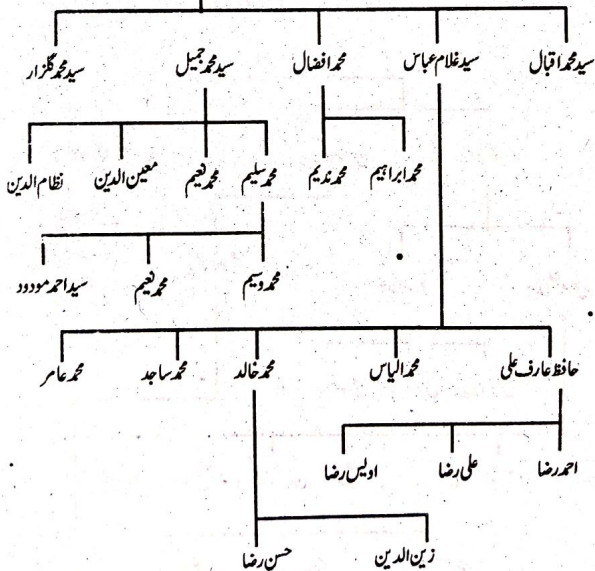 سید محمد اقبال سید غلام عباس محمد افضال سید محمد جمیل سید محمد گلزار
محمد ابراہیم محمد ندیم محمد سلیم محمد نعیم معین الدین نظام الدین
محمد وسیم محمد نعیم سید احمد مودود
حافظ عارف علی محمد الیاس محمد خالد محمد ساجد محمد عامر
احمد رضا علی رضا اویس رضا
زین الدین حسن رضا